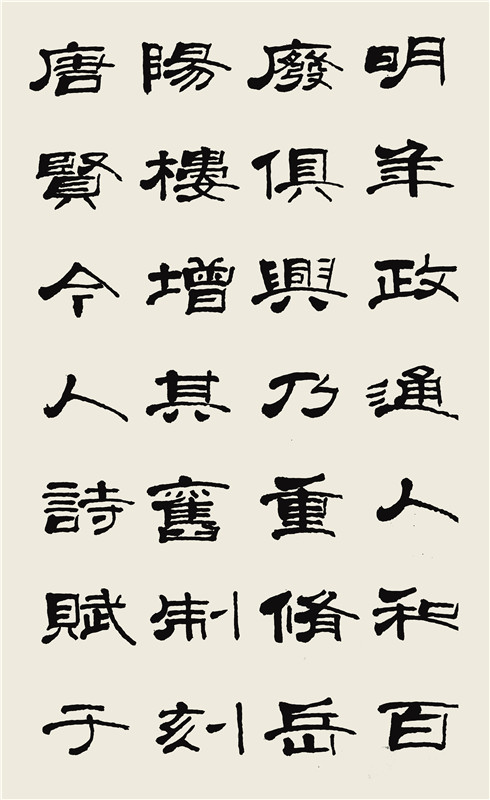 明年政通人和百
廢俱興乃重脩岳
陽樓增其舊制刻
唐賢今人詩賦于